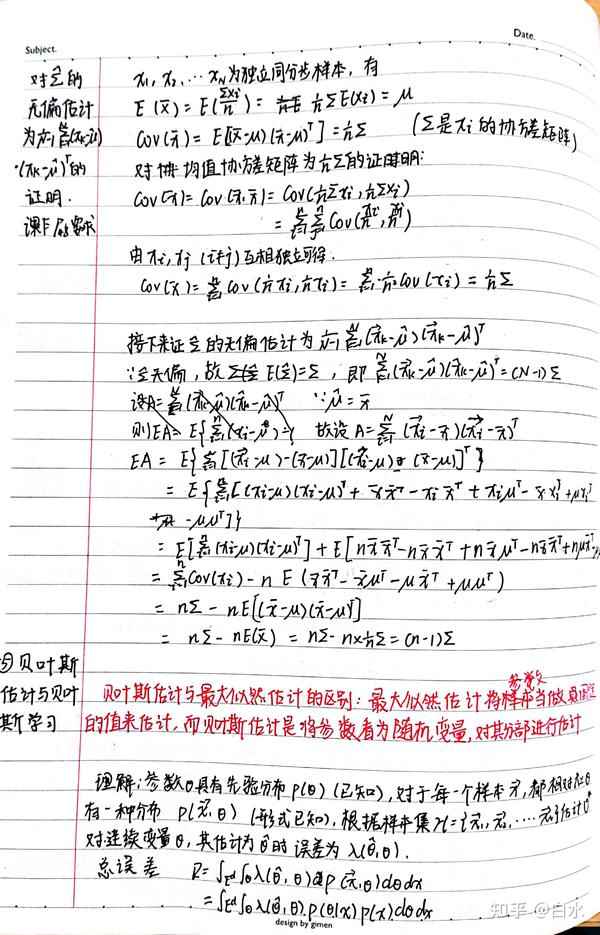 Subject.
Date.
对Σ̂的
无偏估计
为 1/(N-1) Σ(x̄k-μ̂)
·(x̄k-μ̂)ᵀ的
证明.
课下 要求
x₁, x₂, … x_N为独立同分步样本, 有
E(x̄) = E(Σxi/n) = 1/n ΣE(xi) = μ
Cov(x̄) = E[(x̄-μ)(x̄-μ)ᵀ] = 1/n Σ (Σ是xi的协方差矩阵)
对 均值协方差矩阵为1/nΣ的证明:
Cov(x̄) = Cov(x̄, x̄) = Cov(1/nΣxi, 1/nΣxi)
= Σ Σ Cov(xi/n, xj/n)
由xi, xj (i≠j)互相独立可得.
Cov(x̄) = Σ Cov(1/n xi, 1/n xi) = Σ 1/n² Cov(xi) = 1/n Σ
接下来证Σ的无偏估计为 1/(N-1) Σ(x̄k-μ̂)(x̄k-μ̂)ᵀ
∵ 无偏, 故 E(Σ̂)=Σ, 即 Σ(x̄k-μ̂)(x̄k-μ̂)ᵀ = (N-1)Σ
设A= Σ(x̄k-μ̂)(x̄k-μ̂)ᵀ ∵ μ̂ = x̄
则EA= E{Σ(xi-μ̂) 故设 A= Σ(x̄i-x̄)(x̄i-x̄)ᵀ
EA = E{Σ[(xi-μ)-(x̄-μ)][(xi-μ)-(x̄-μ)]ᵀ}
= E{Σ[(xi-μ)(xi-μ)ᵀ + x̄x̄ᵀ - xi x̄ᵀ + xiμᵀ - x̄xiᵀ + μxiᵀ
- μμᵀ]}
= E[Σ(xi-μ)(xi-μ)ᵀ] + E[nx̄x̄ᵀ - nx̄x̄ᵀ + nx̄μᵀ - nx̄x̄ᵀ + nμx̄ᵀ
= ΣCov(xi) - n E(x̄x̄ᵀ - x̄μᵀ - μx̄ᵀ + μμᵀ)
= nΣ - nE[(x̄-μ)(x̄-μ)ᵀ]
= nΣ - nE(x̄) = nΣ - n×1/nΣ = (n-1)Σ
③贝叶斯
估计与贝叶
斯学习
参数
贝叶斯估计与最大似然估计的区别: 最大似然估计将样本当做 固定
的值来估计, 而贝叶斯估计是将参数看为随机变量, 对其分部进行估计
理解: 参数θ具有先验分布P(θ) (已知), 对于每一个样本x̄, 都相对应θ
有一种分布 P(x̄, θ) (形式已知), 根据样本集 = {x̄₁, x̄₂, … 估计θ̂
对连续变量θ, 其估计为θ̂时误差为λ(θ̂, θ).
总误差 R = ∫Eᵈ∫θ λ(θ̂, θ) p(x̄, θ) dθdx
= ∫Eᵈ∫θ λ(θ̂, θ). P(θ|x) P(x) dθdx
design by gimen
知乎 @白水